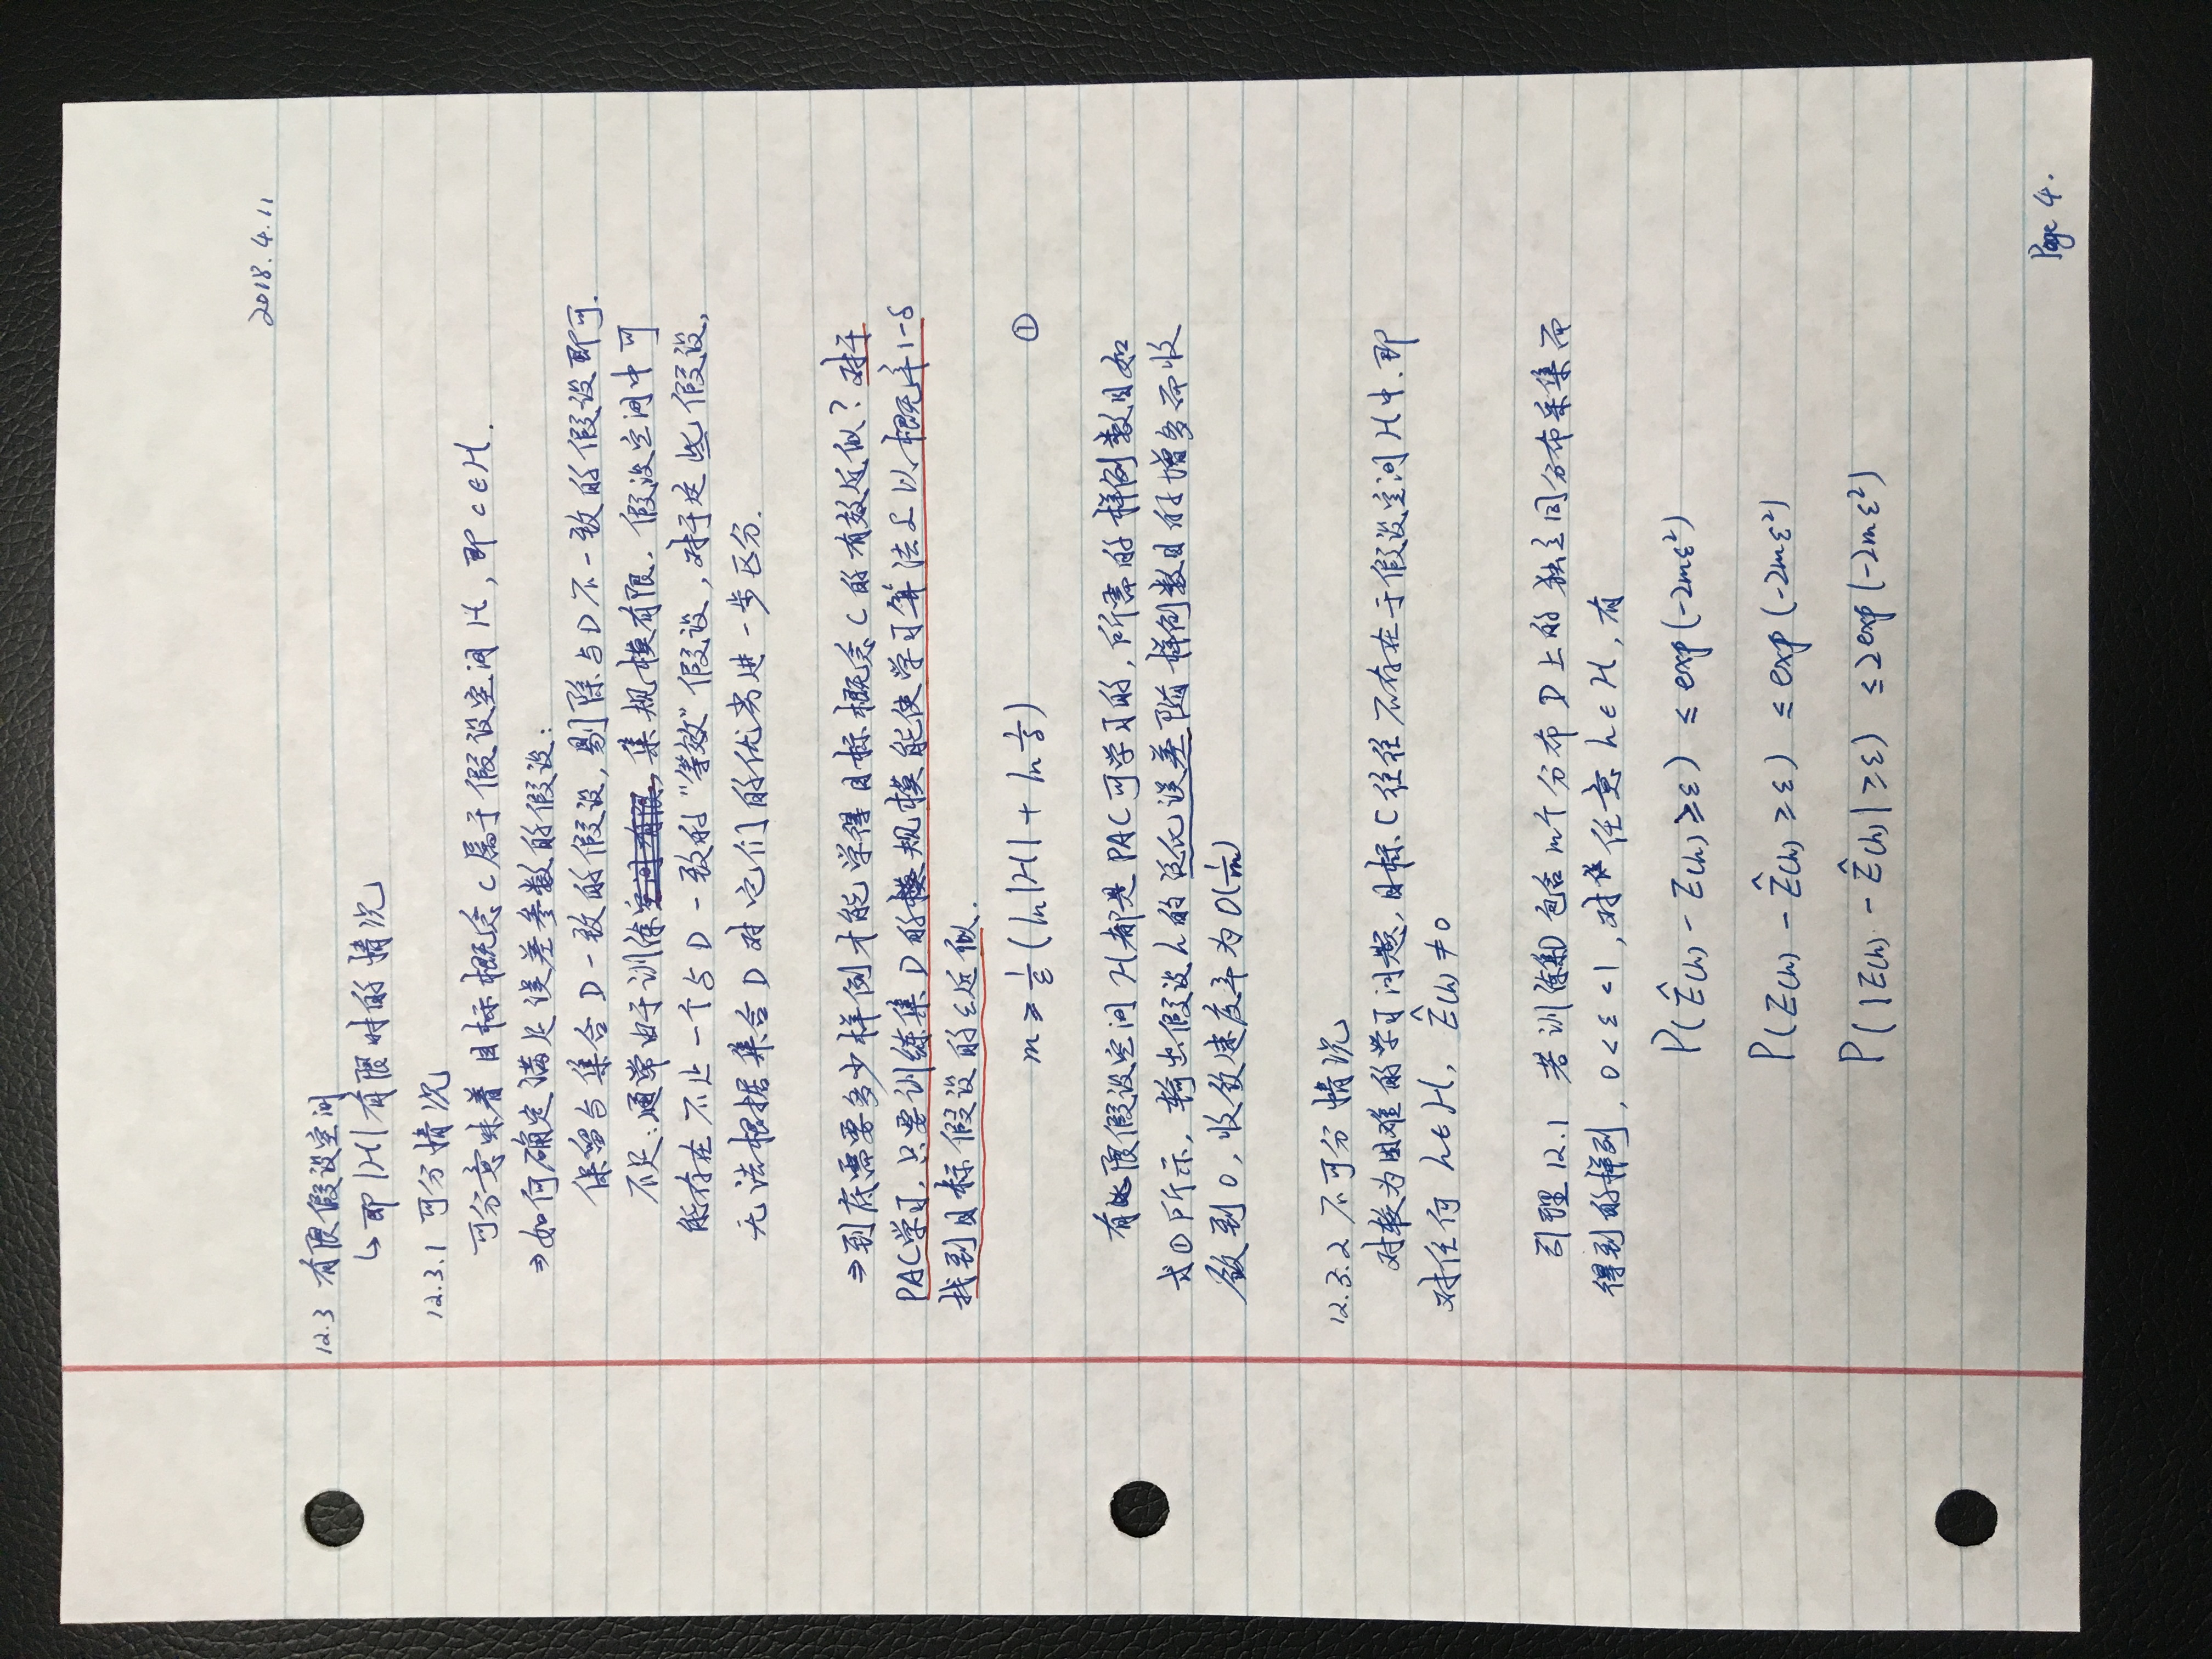 2018.4.11
12.3 有限假设空间
↳ 即 |H| 有限时的情况
12.3.1 可分情况
可分意味着目标概念 c 属于假设空间 H, 即 c∈H.
⇒如何确定满足误差参数的假设:
保留与集合 D 一致的假设, 剔除与 D 不一致的假设即可.
不足: 通常由于训练集规模有限. 假设空间中可
能存在不止一个与 D 一致的"等效"假设, 对于这些假设,
无法根据集合 D 对它们的优劣进一步区分.
⇒到底需要多少样例才能学得目标概念 c 的有效近似? 对于
PAC学习, 只要训练集 D 的规模能使学习算法 L 以概率 1-δ
找到目标假设的 ε 近似.
m ≥ 1/ε (ln|H| + ln 1/δ) ①
有限假设空间 H 都是 PAC 可学习的, 所需的样例数目如
式①所示, 输出假设 h 的泛化误差随样例数目的增多而收
敛到 0, 收敛速度率为 O(1/m)
12.3.2 不可分情况
对较为困难的学习问题, 目标 C 往往不存在于假设空间 H 中. 即
对任何 h∈H, Ê(h) ≠ 0
引理 12.1 若训练集D包含 m个分布 D 上的独立同分布采集而
得到的样列, 0<ε<1, 对任意 h∈H, 有
P(Ê(h) - E(h) ≥ ε) ≤ exp(-2mε²)
P(E(h) - Ê(h) ≥ ε) ≤ exp(-2mε²)
P(|E(h) - Ê(h)| ≥ ε) ≤ 2exp(-2mε²)
Page 4.